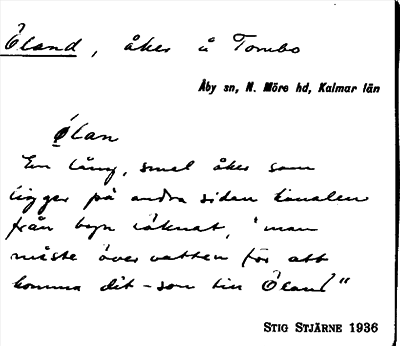 Öland, åker å Tombo
Åby sn, N. Möre hd, Kalmar län
Ölan
En lång, smal åker som
ligger på andra sidan kanalen
från byn räknat, "man
måste över vatten för att
komma dit - som till Öland"
STIG STJÄRNE 1936